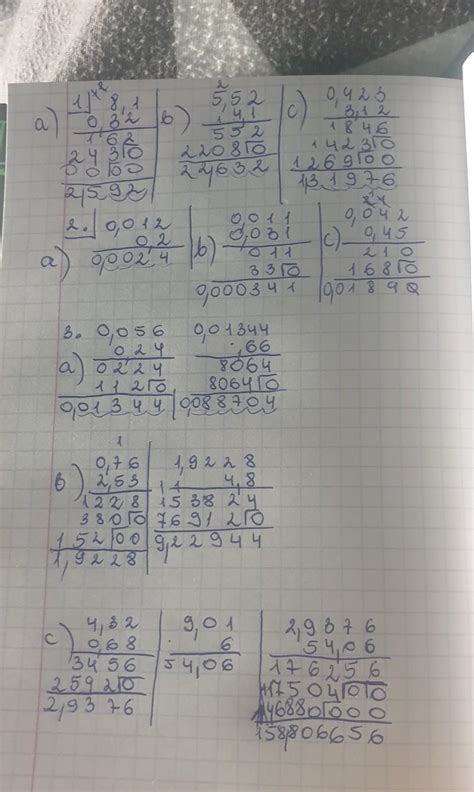 1.
a)
8,1
0,32
162
24300
0000
2,592
b)
2
5,52
4,1
552
22080
22,632
c)
0,423
3,12
1846
14230
126900
1,31976
2.
a)
0,012
0,2
0,0024
b)
0,011
0,031
011
330
0,000341
c)
0,042
0,45
210
1680
0,01890
3.
a)
0,056
0,24
0224
1120
0,01344
0,01344
,66
8064
80640
0,0088704
b)
1
0,76
2,53
1228
3800
15200
1,9228
1,9228
4,8
153824
769120
9,22944
c)
4,32
0,68
3456
25920
2,9376
9,01
6
54,06
2,9376
54,06
176256
11750400
146880000
158,806656